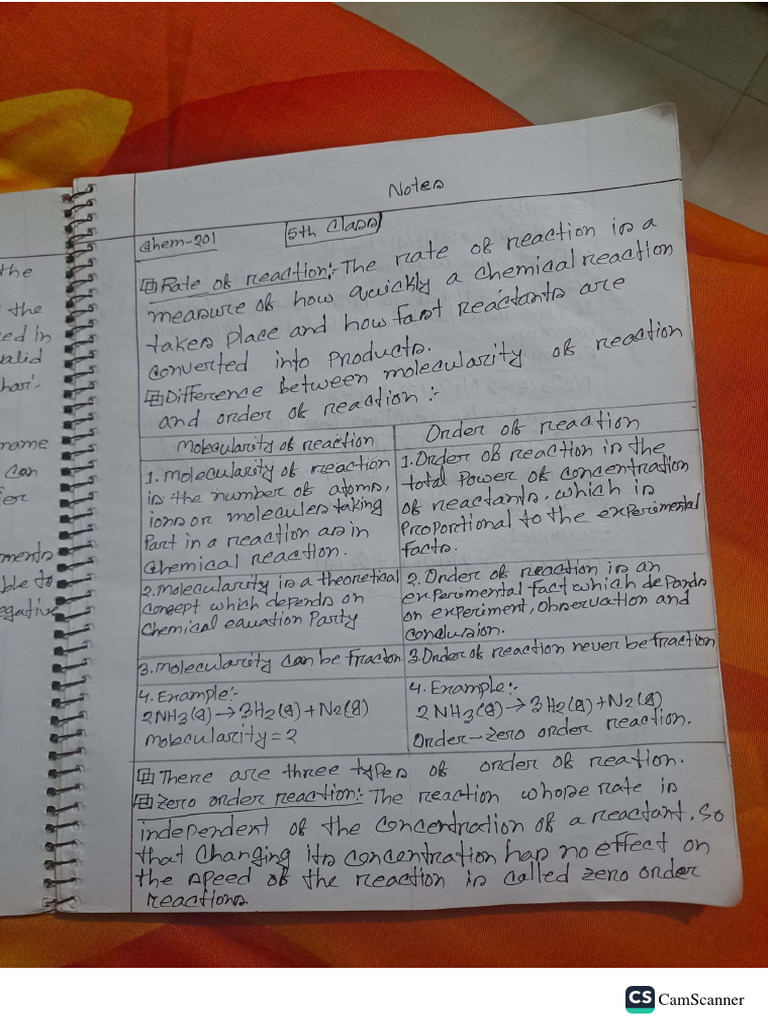 Notes
Chem-201 5th Class
Rate of reaction:- The rate of reaction is a
measure of how quickly a chemical reaction
takes place and how fast reactants are
converted into products.
Difference between molecularity of reaction
and order of reaction :-
Molecularity of reaction
1. Molecularity of reaction
is the number of atoms,
ions or molecules taking
part in a reaction as in
chemical reaction.
2. Molecularity is a theoretical
concept which depends on
Chemical equation Party
3. Molecularity can be fraction
4. Example:-
2NH3(g) → 3H2(g) + N2(g)
Molecularity = 2
Order of reaction
1. Order of reaction is the
total Power of concentration
of reactants, which is
Proportional to the experimental
facts.
2. Order of reaction is an
experimental fact which depands
on experiment, observation and
conclusion.
3. Order of reaction never be fraction
4. Example:-
2NH3(g) → 3H2(g) + N2(g)
Order-zero order reaction.
There are three types of order of reation.
Zero order reaction:- The reaction whose rate is
independent of the concentration of a reactant. So
that changing its concentration has no effect on
the speed of the reaction is called zero order
reactions.
the
the
ed in
alid
name
can
ments
ble to
egative
CS CamScanner